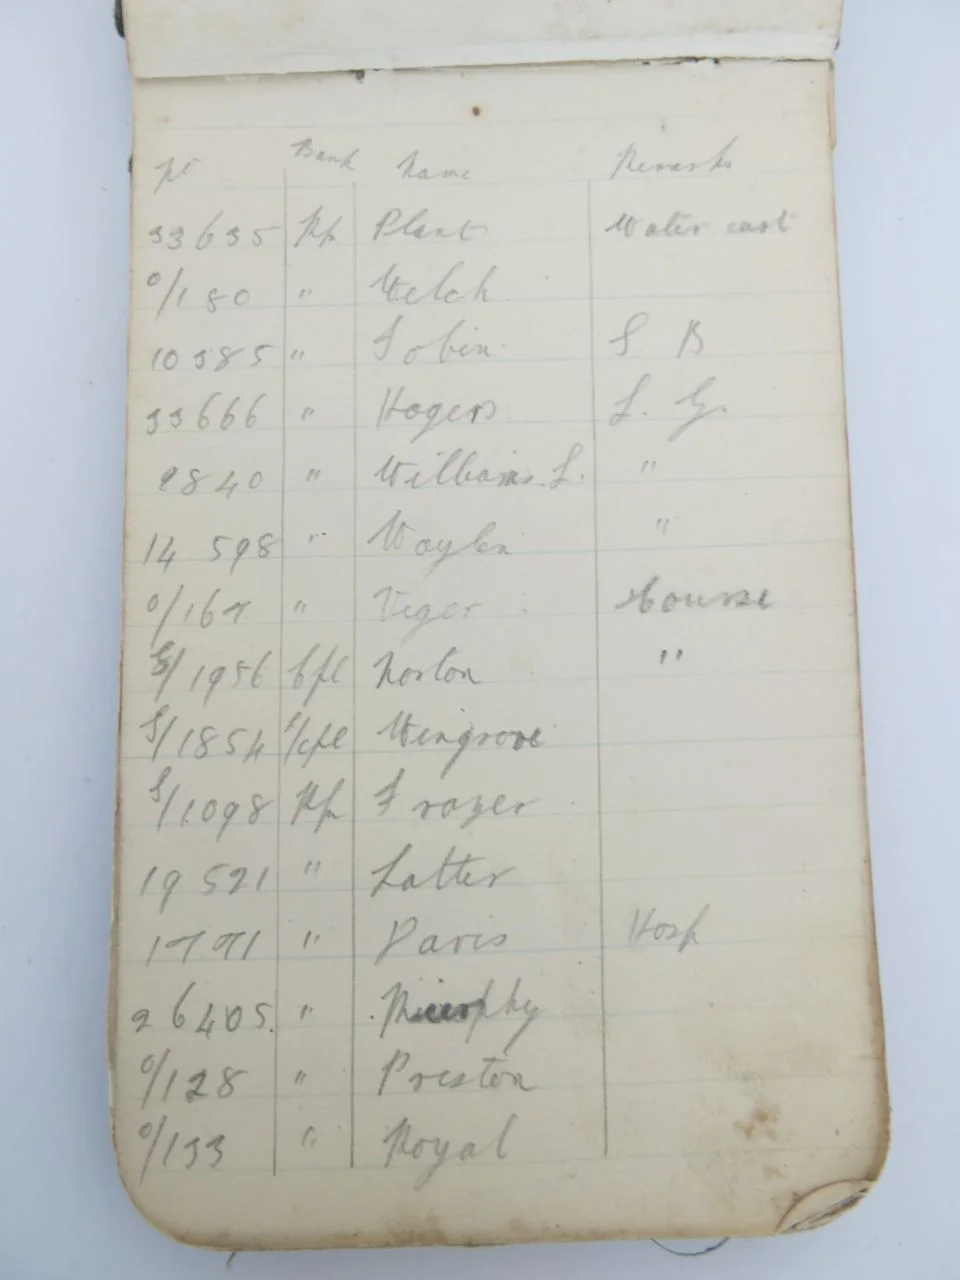 No Rank Name Remarks
33635 Rfn Plant Water cart
O/180 " Welch
10385 " Tobin S B
33666 " Rogers L. G.
9840 " Williams. L. "
14 598 " Waylen "
O/167 " Viger Course
S/1956 Cpl Norton "
S/1854 L/cpl Wingrove
S/1098 Rfn Frazer
19 521 " Latter
1771 " Davis Hosp
26405. " Murphy
O/128 " Preston
O/133 " Royal